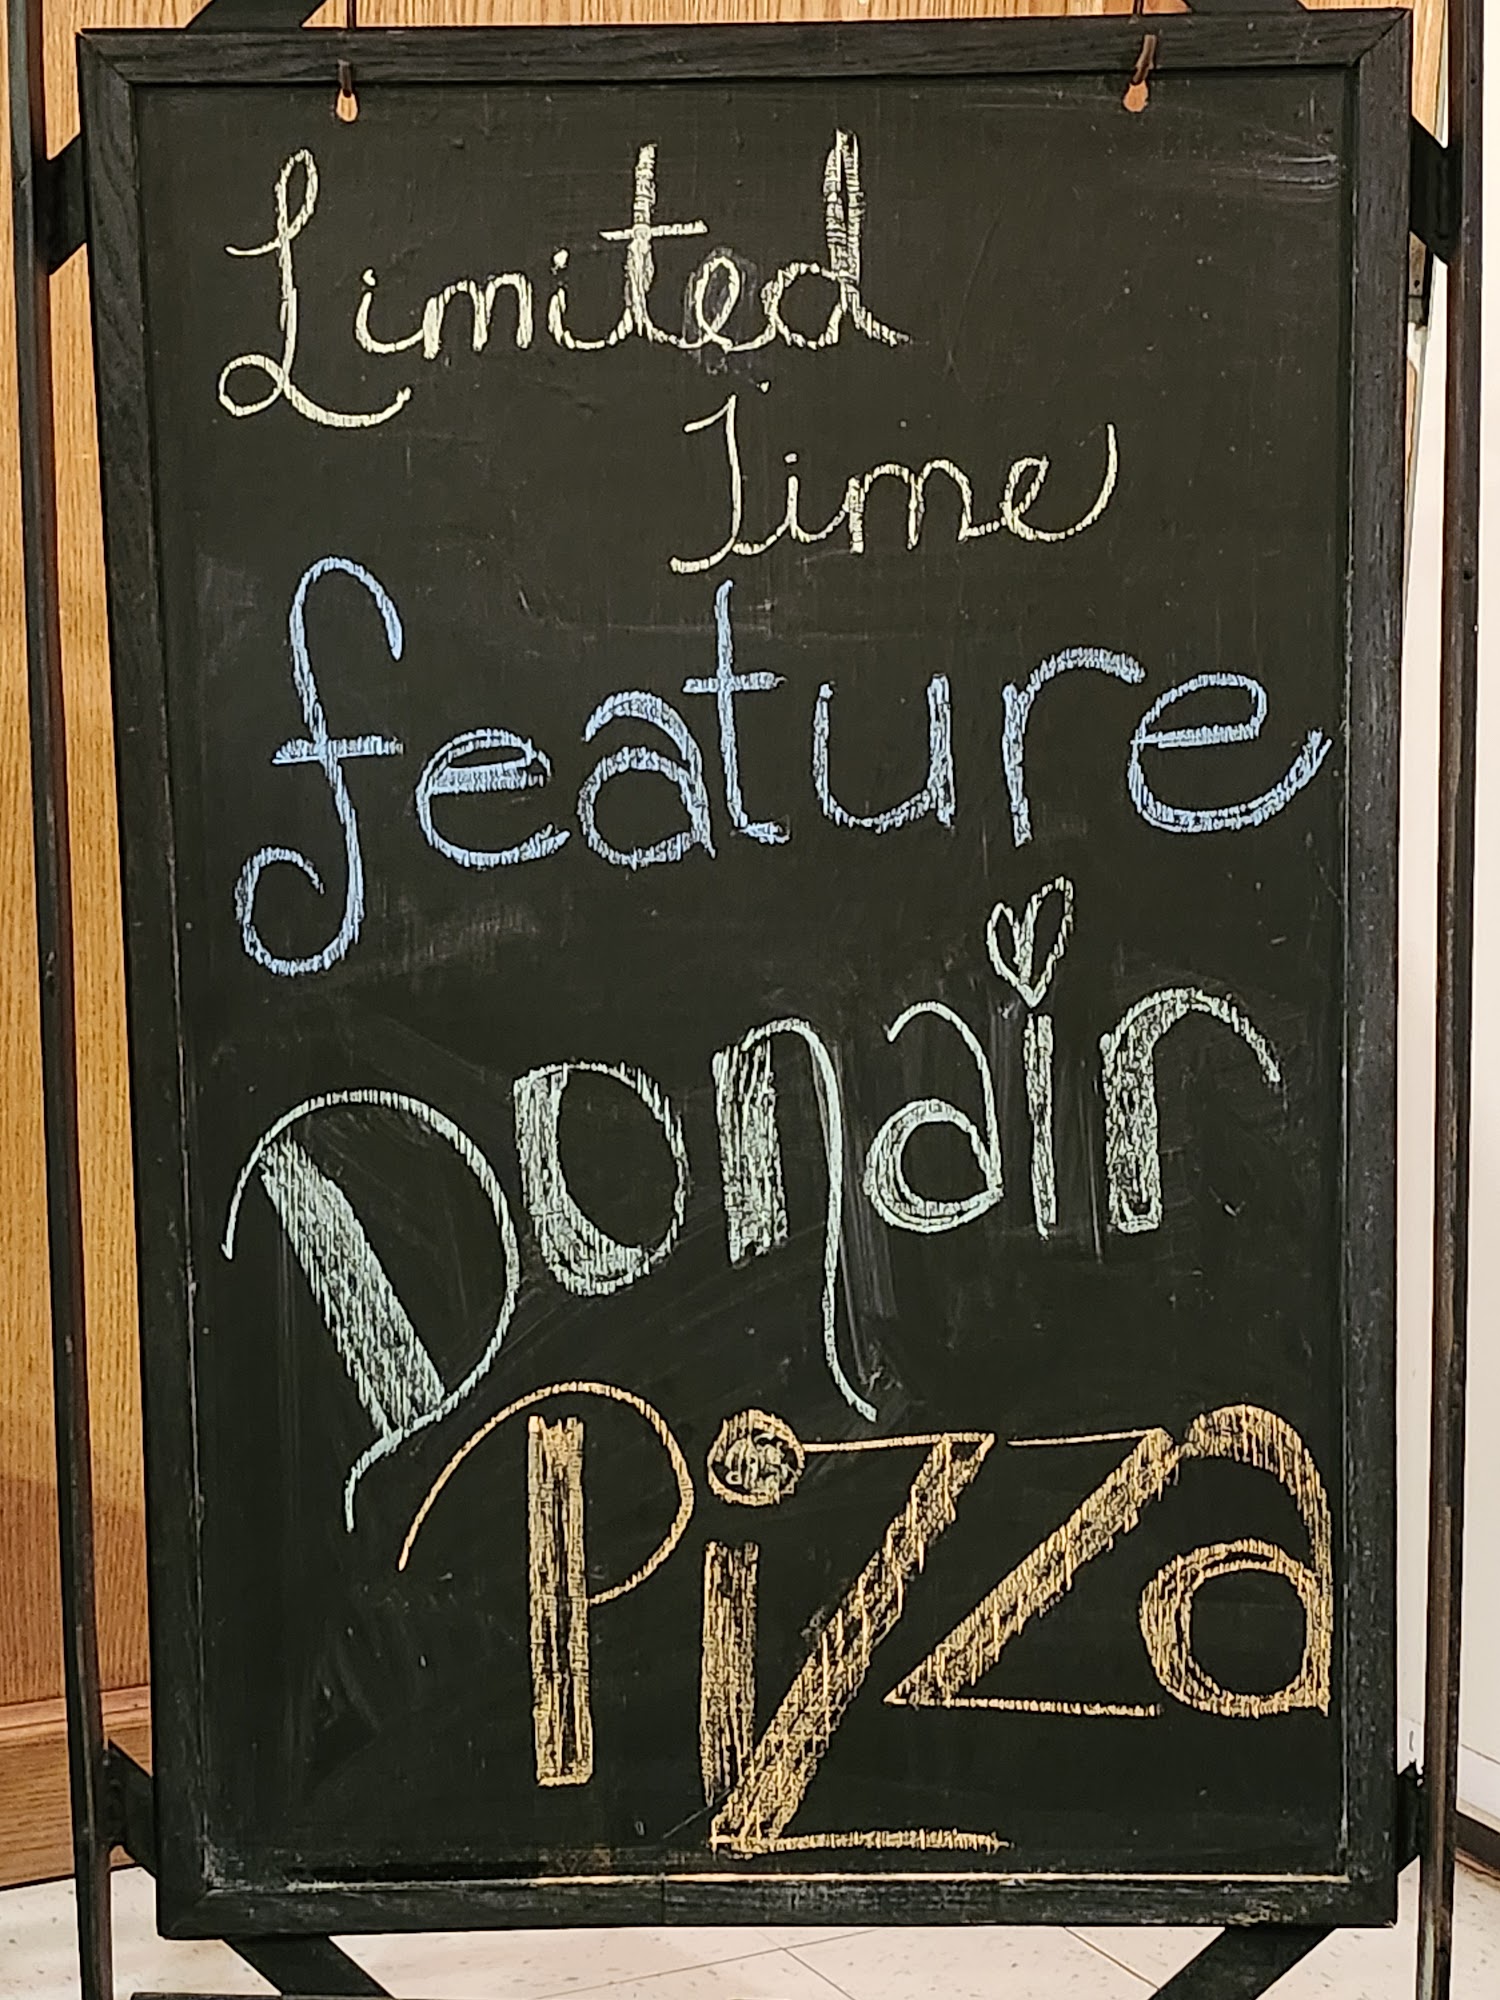 Limited
Time
feature
Donair
Pizza